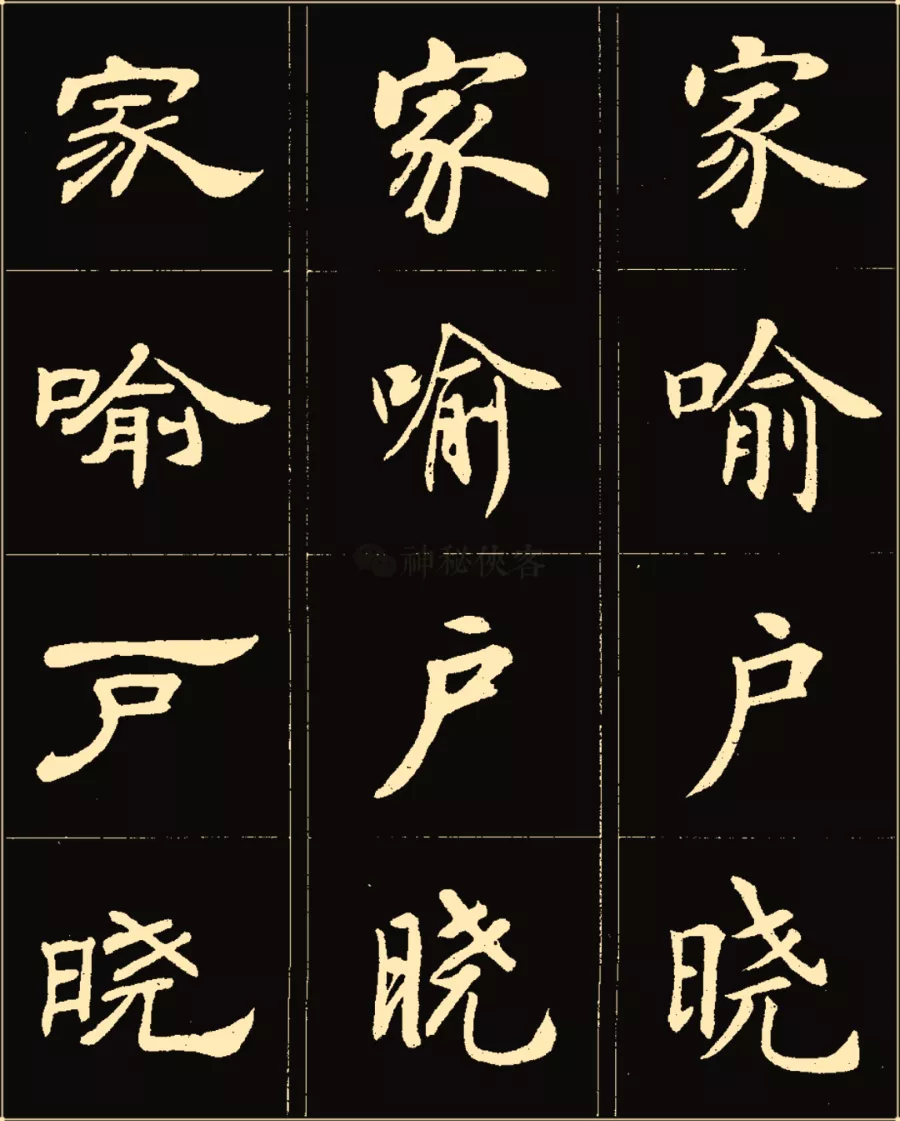 家 家 家
喻 喻 喻
神秘侠客
户 户 户
晓 晓 晓